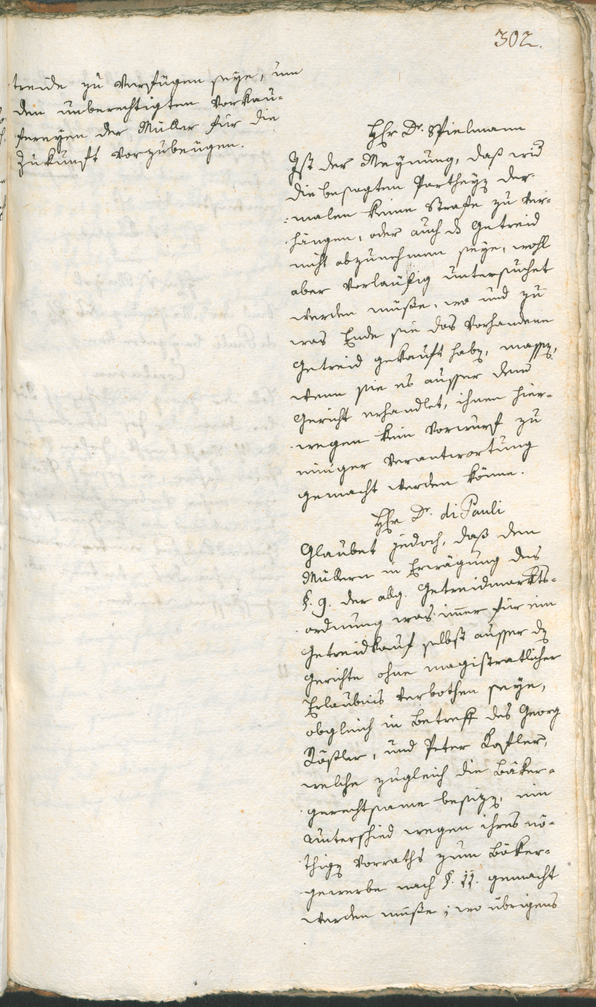 302.
treide zu verfügen seye, um
den unberechtigten Vorkäu-
fereyen der Müller für die
Zukunft vorzubeugen.
Hhr Dr. Spielmann
Ist der Meynung, daß wid
die besagten Partheyen der-
malen keine Strafe zu ver-
hängen, oder auch das Getreid
nicht abzunehmen seye, wohl
aber vorläufig untersuchet
werden müße, wo und zu
was Ende sie das vorhandene
Getreid gekauft haben, massen,
wenn sie es ausser dem
Gericht erhandlet, ihnen hier-
wegen kein Vorwurf zu
einiger Verantwortung
gemacht werden könne.
Hhr Dr. di Pauli
Glaubet jedoch, daß den
Müllern in Erwägung des
§. 9. der allg. Getreidmarkts-
ordnung was imer für ein
Getreidkauf selbst ausser dem
Gerichte ohne magistratlicher
Erlaubnis verbothen seye,
obgleich in Betreff des Georg
Rößler, und Peter Kofler,
welche zugleich die Bäker-
gerechtsame besizen, ein
Unterschied wegen ihres nö-
thigen Vorraths zum Bäker-
gewerbe nach §. 11. gemacht
werden müße; wo übrigens